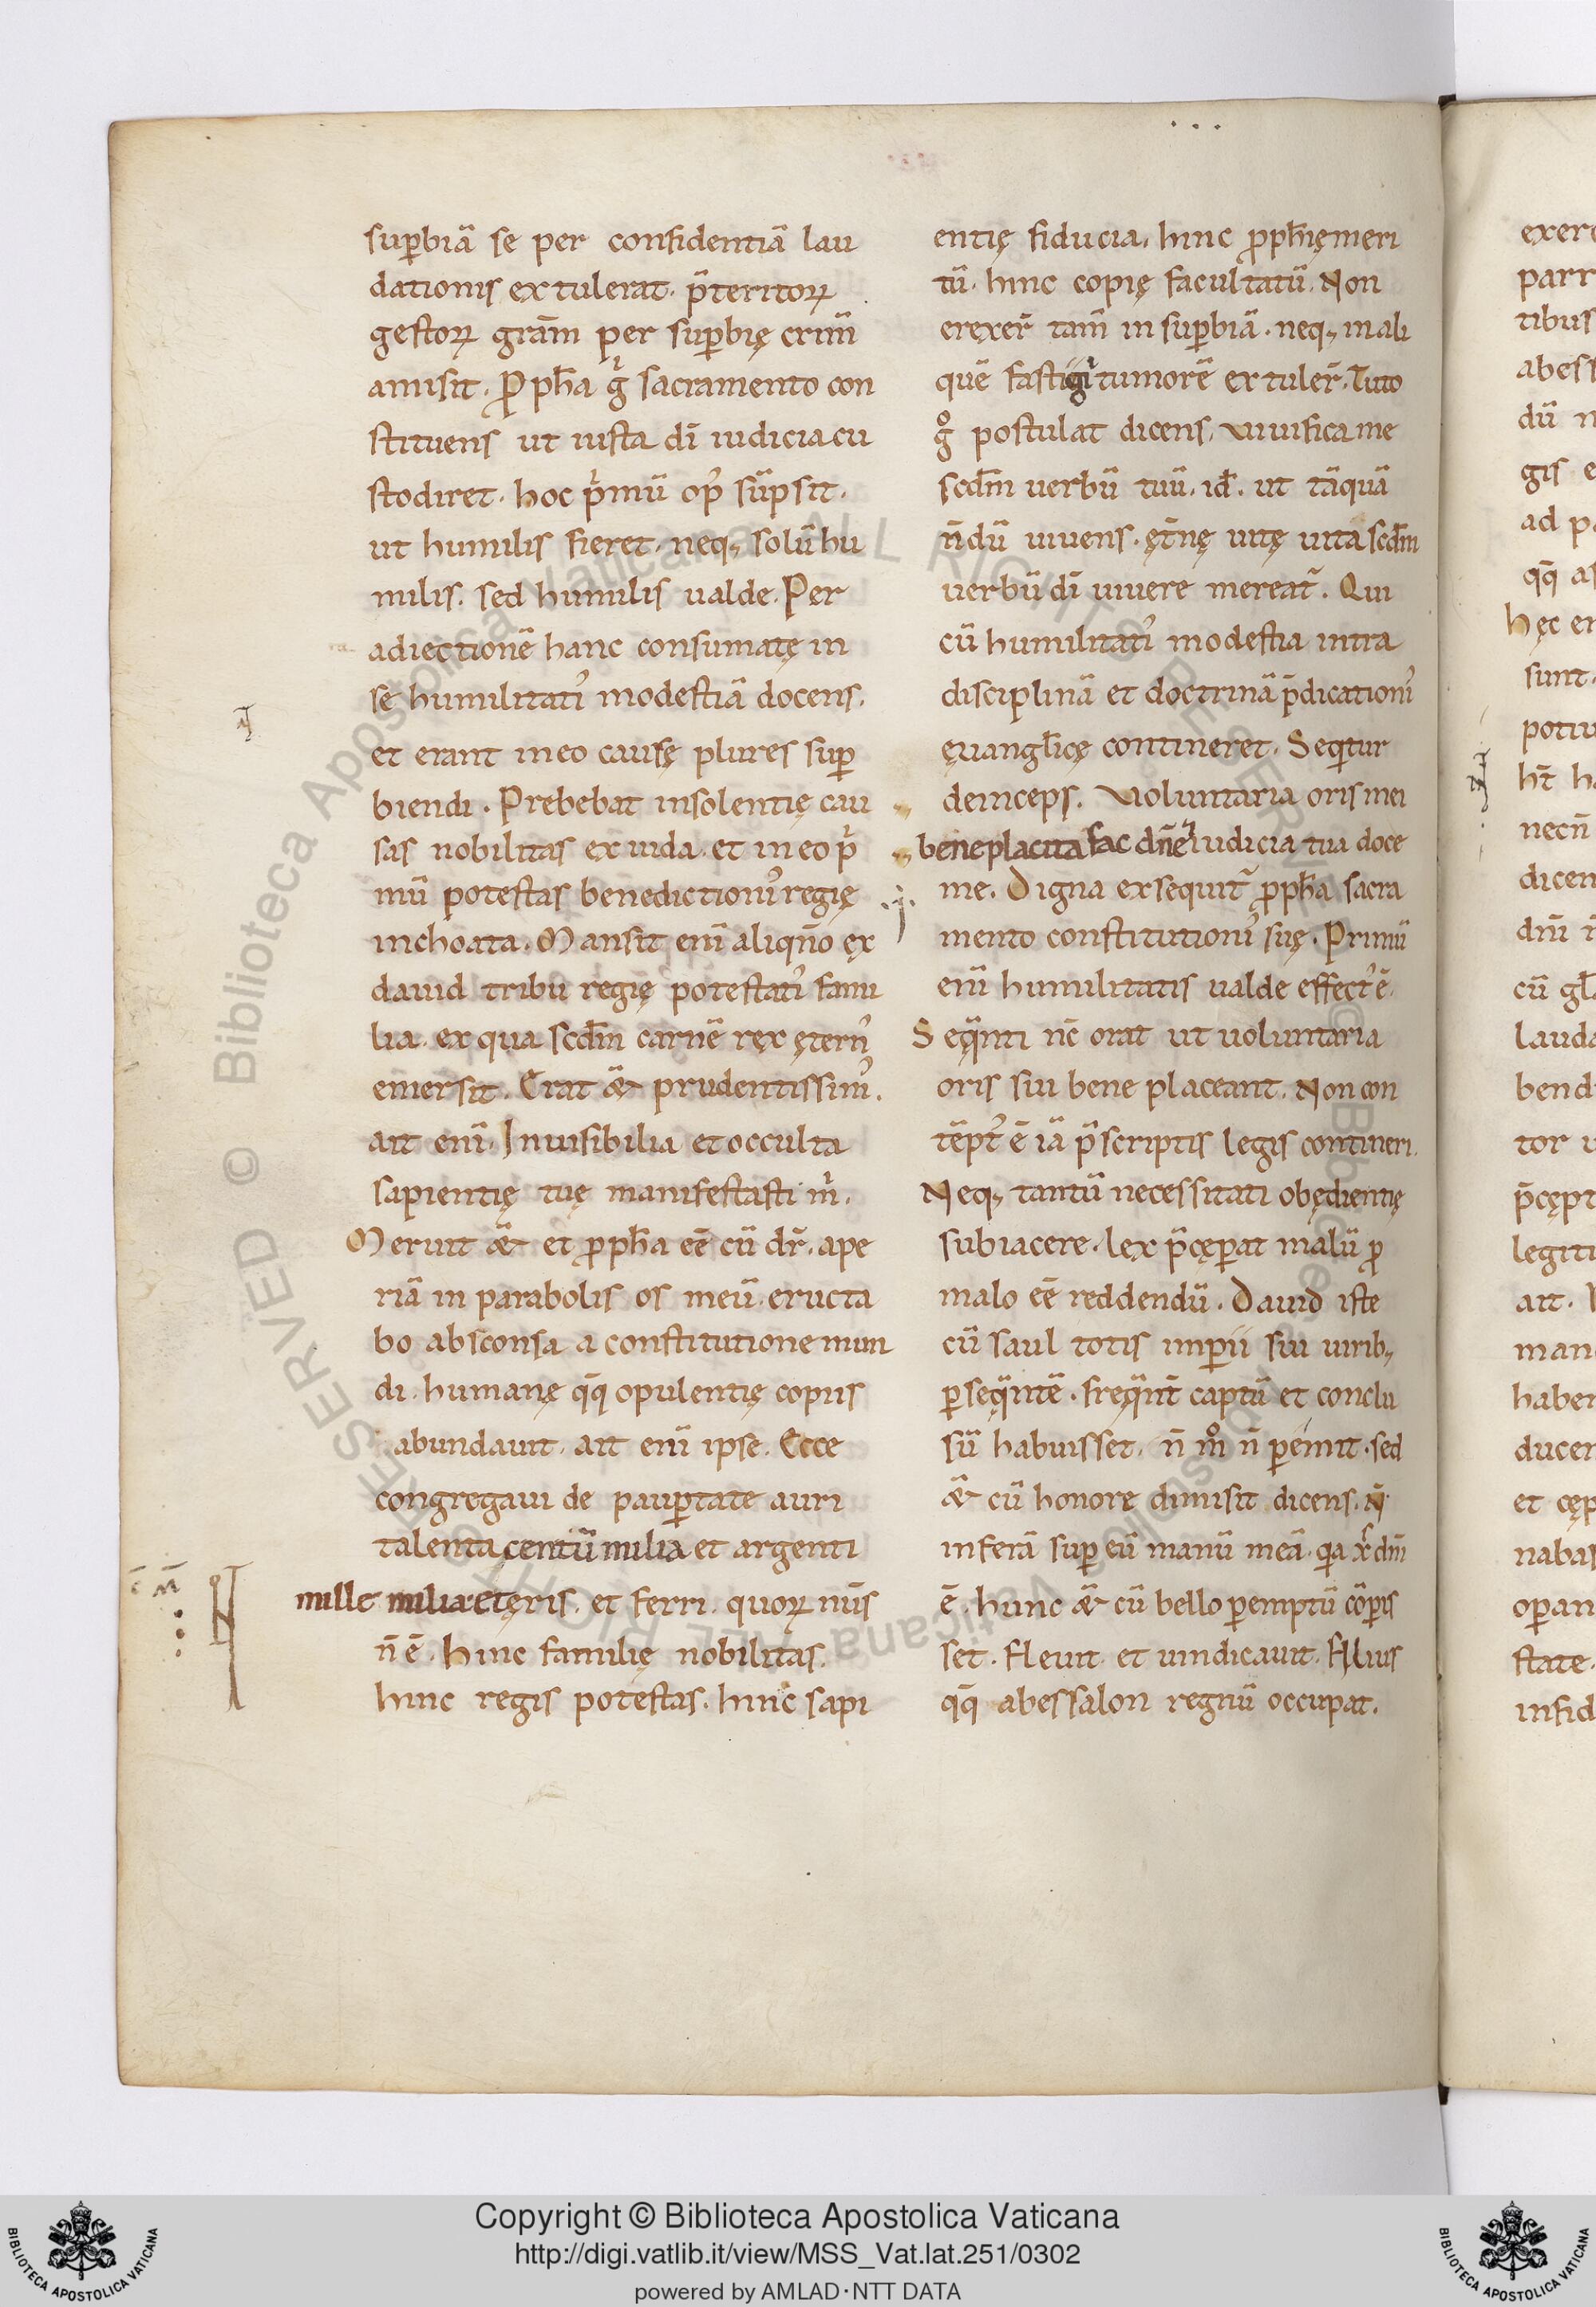 sup̄biā se per confidentiā lau
dationis extulerat. p̄teritoꝝ
gestoꝝ grām per sup̄bię crim̄
amisit. ꝓph̄a gͥ sacramento con
stituens ut iusta dī iudicia cu
stodiret. hoc pͥmū op᾽ sūpsit.
ut humilis fieret. neq; solū hu
milis. sed humilis ualde. Per
adiectionē hanc consumatę in
se humilitati᾽ modestiā docens.
et erant in eo causę plures suꝑ
biendi. Prebebat insolentię cau
sas nobilitas ex iuda. et in eo pͥ
mū potestas benedictioni᾽ regię
inchoata. Mansit eni᷄ aliqn̄o ex
dauid tribu regię potestati᾽ fami
lia. ex qua scd̄m carnē rex ętern᾽
emersit. Erat ǣ prudentissim᾽.
ait eni᷄. Inuisibilia et occulta
sapientię tuę manifestasti mͥ.
Meruit ǣ et ꝓph̄a eē cū dr̄. ape
riā in parabolis os meū. eructa
bo absconsa a constitutione mun
di. humanę qq̄ opulentię copiis
abundauit. ait eni᷄ ipse. Ecce
congregaui de pauꝑtate auri
talenta centū milia et argenti
mille milia. et ęris. et ferri. quoꝝ nūs
n̄ ē. hinc familię nobilitas.
hinc regis potestas. hinc sapi
entię fiducia. hinc ꝓph̄ię meri
tū. hinc copię facultatū. Non
erexer̄ tam̄ in suꝑbiā. neq; in ali
quē fastigii tumorē extuler̄. Tuto
gͦ postulat dicens. Viuifica me
scd̄m uerbū tuū. id̄. ut tāquā
n̄dū uiuens. ęt̄nę uitę uitā scd̄m
uerbū dī uiuere mereat᷑. Qui
cū humilitati᾽ modestia intra
disciplinā et doctrinā p̄dicationi᾽
ęuangl̄icę contineret. Seqͥtur
deinceps. Voluntaria oris mei
beneplacita fac dn̄e ⁊ iudicia tua doce
me. Digna exsequit᷑ ꝓph̄a sacra
mento constitutioni᾽ suę. Primū
eni᷄ humilitatis ualde effect᾽ ē.
Seq̄nti nc̄ orat ut uoluntaria
oris sui bene placeant. Non con
tēpt᾽ ē iā p̄scriptis legis contineri.
Neq; tantū necessitati obędientię
subiacere. lex p̄cęꝑat malū ꝓ
malo eē reddendū. Dauid iste
cū saul totis imꝑii sui uirib;
ꝑseq̄ntē. freq̄nt̄ captū et conclu
sū habuisset. n̄ mͦ n̄ ꝑemit. sed
ǣ cū honore dimisit dicens. N̄
inferā suꝑ eū manū meā. qa xr̄ dn̄i
ē. hunc ǣ cū bello ꝑemptū cōꝑis
set. Fleuit et uindicauit. Filius
qq̄ abessalon regnū occupat.
Copyright © Biblioteca Apostolica Vaticana
http://digi.vatlib.it/view/MSS_Vat.lat.251/0302
powered by AMLAD·NTT DATA